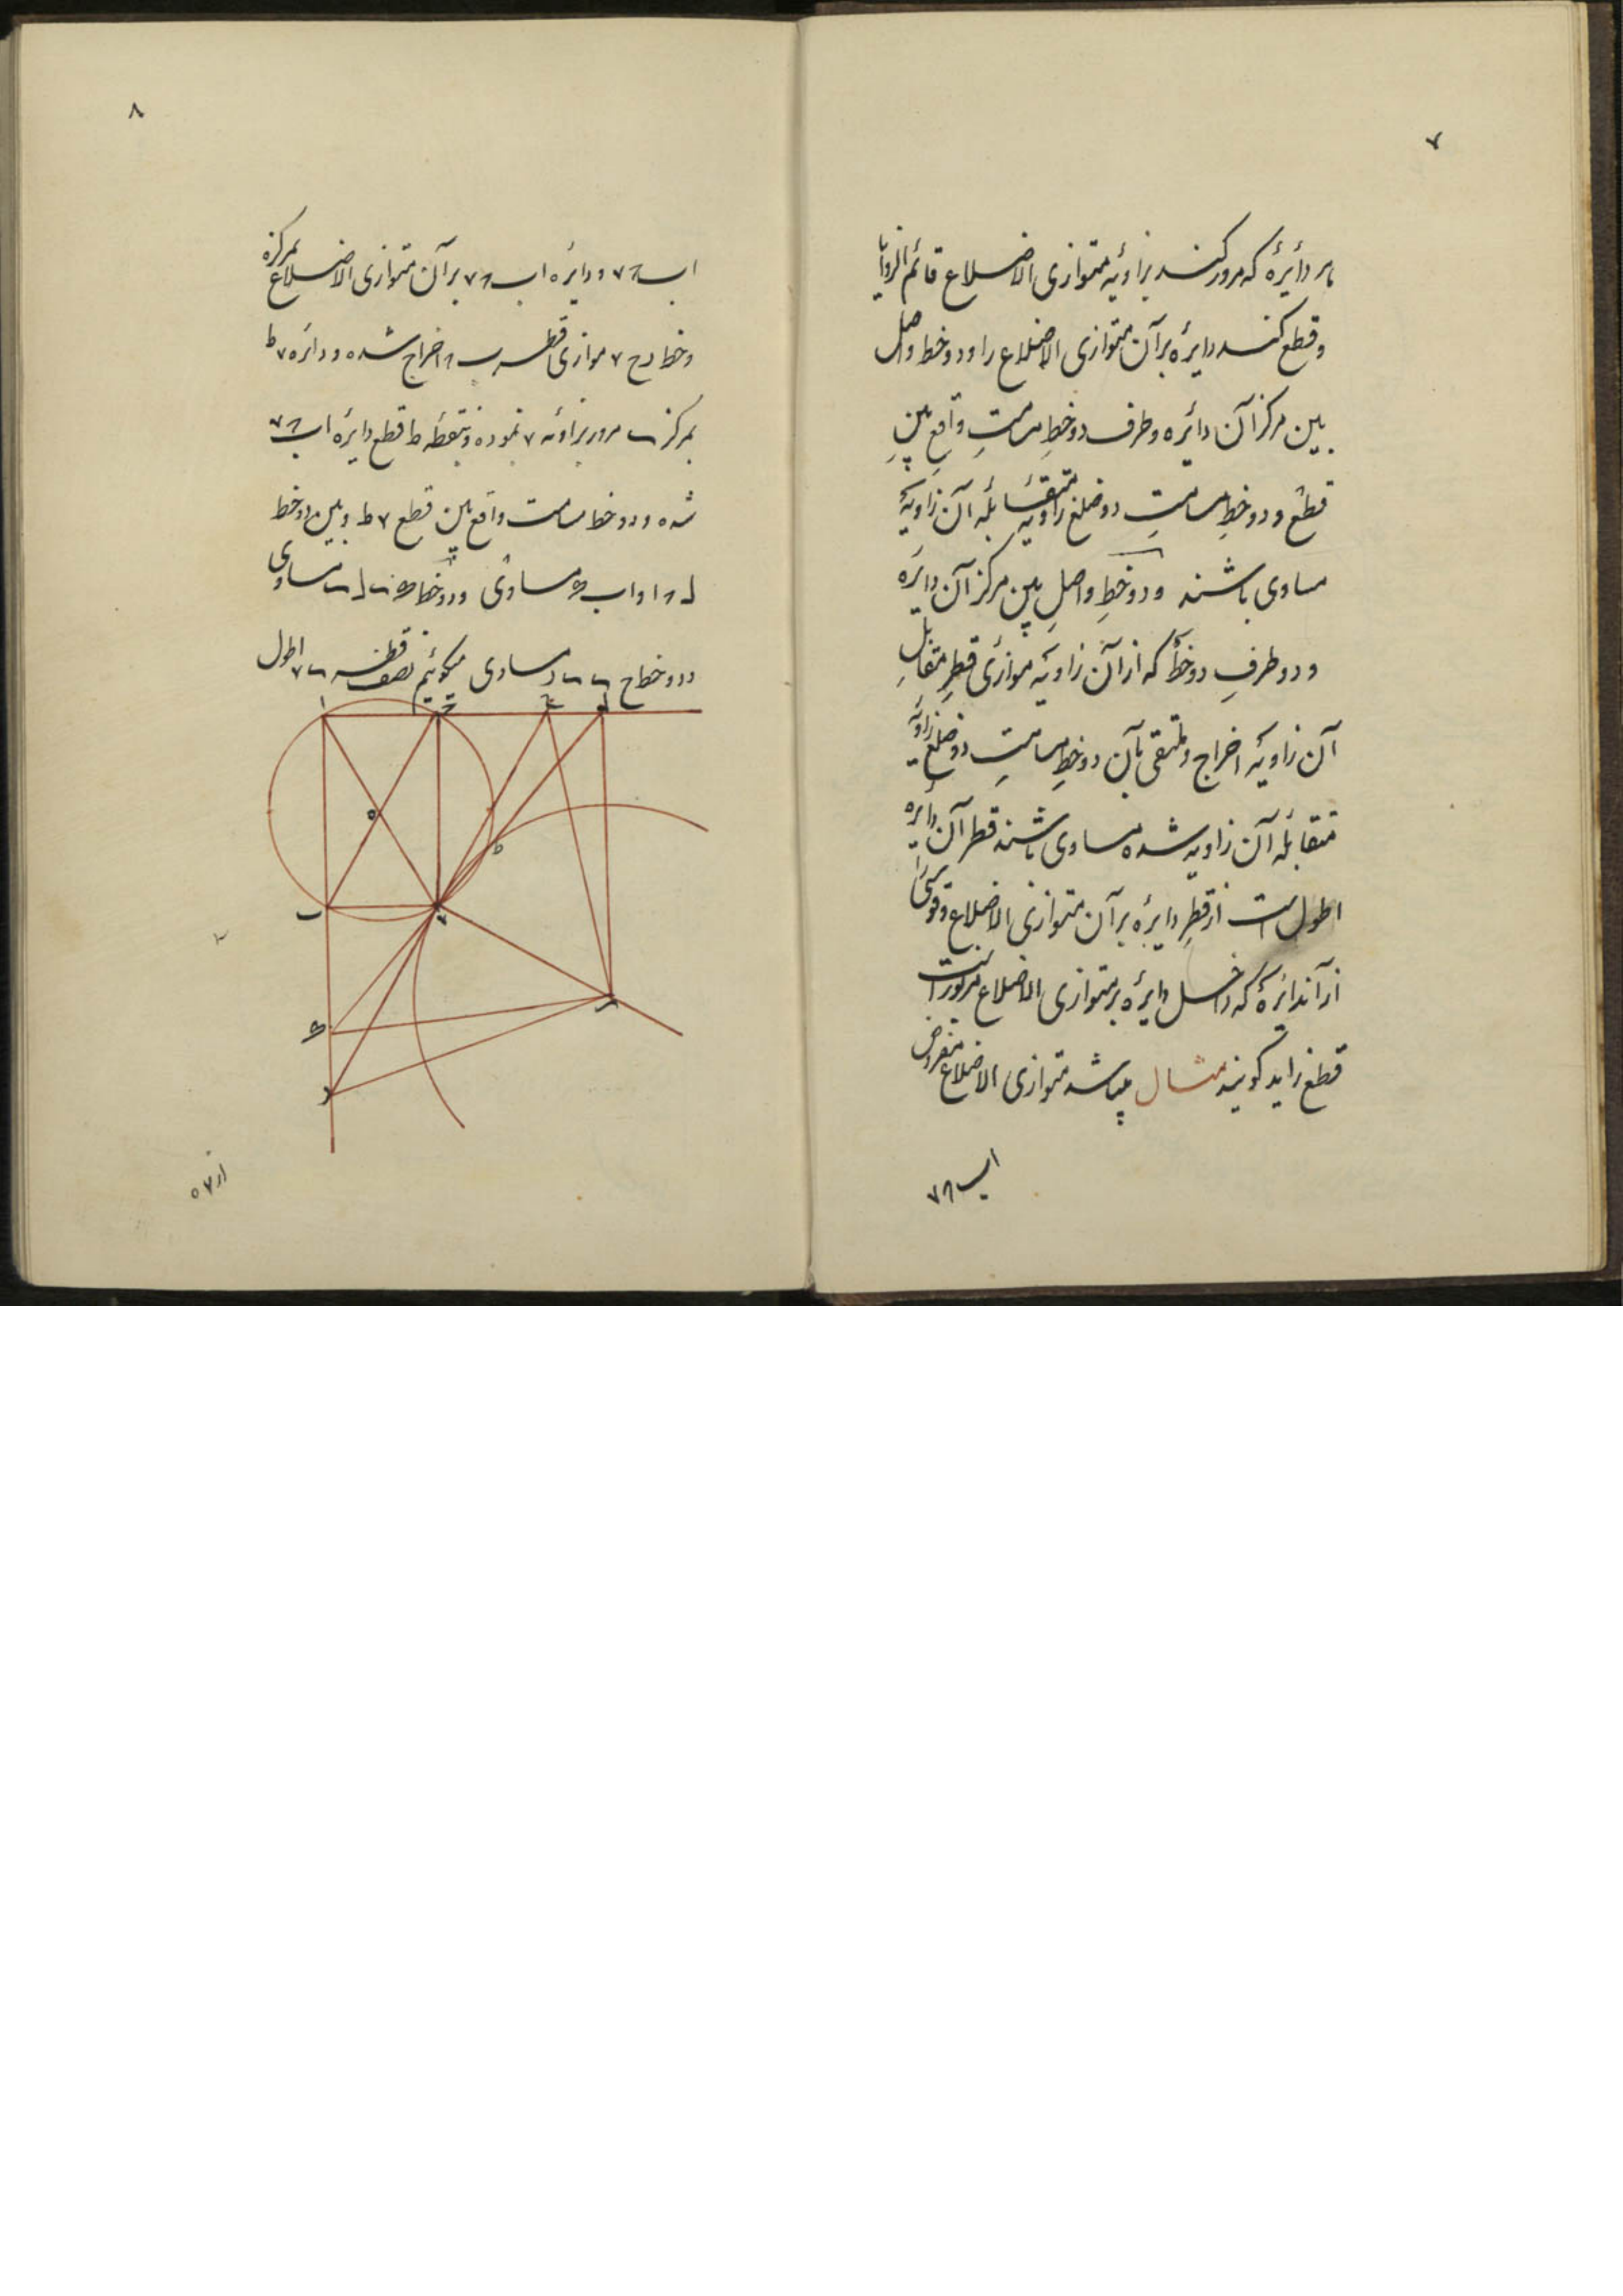 ۷
هر دائرهٔ که مرور کند بزاویهٔ متوازی الاضلاع قائم الزوایا
و قطع کند دایرهٔ بر آن متوازی الاضلاع را و دو خط واصل
بین مرکز آن دائره و طرف دو خطِ مسامتِ واقع بینِ
قطع و دو خطِ مسامتِ دو ضلع زاویه متقابله آن زاویهٔ
مساوی باشند و دو خطِ واصلِ بین مرکز آن دایره
و دو طرفِ دو خط که از آن زاویه موازی قطرِ مقابلِ
آن زاویه اخراج و ملتقی بآن دو خطِ مسامتِ دو ضلع زاویه
متقابله آن زاویه شده مساوی باشند قطر آن دایره
اطول است از قطرِ دایرهٔ بر آن متوازی الاضلاع و قوسی
از آندائرهٔ که داخل دایرهٔ بر متوازی الاضلاع مزبور است
قطع زاید گویند مثال میباشد متوازی الاضلاع مفروض
اب۸۷
۸
اب۸۷ و دایره اب۸۷ بر آن متوازی الاضلاع بمرکز ه
و خط رح ۷ موازی قطر ب۸ اخراج شده و دائره ۷ط
بمرکز مرور بزاویه ۷ نموده و بنقطه ط قطع دایره اب۸۷
شده و دو خط مسامت واقع بین قطع ۷ط و بین دو خط
و اب مساوی و دو خط مساوی
و دو خط ح مساوی میگوئیم نصف قطر اطول
ا
ح
ه
ط
ب